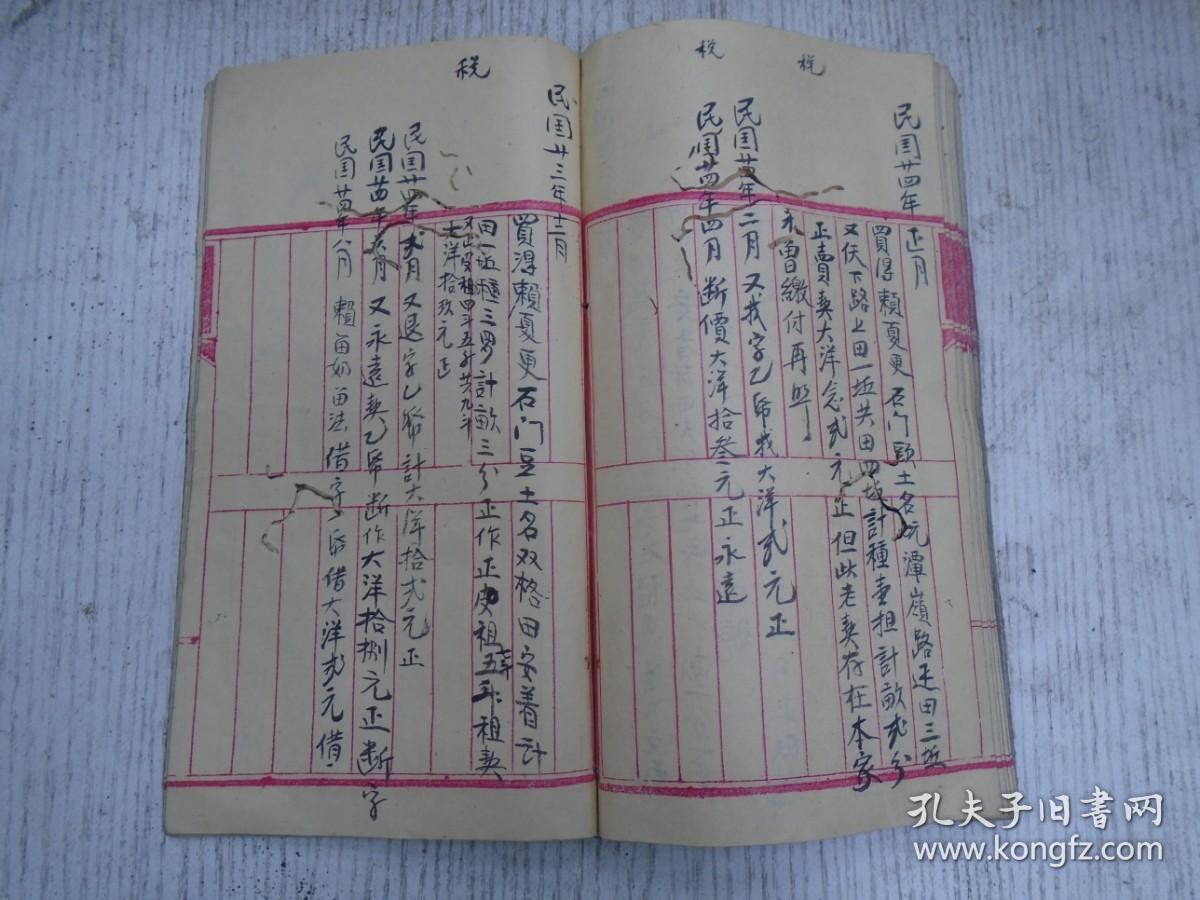 税
税
民国廿四年正月
買得賴夏更石门頭土名坑潭嶺路疋田三坵
又伏下路上田一坵共田四坵計種壹担計畝弍分
正賣契大洋念弍元正但此老契存在本家
未曾缴付再照
民国廿四年二月又找字乙帋找大洋弍元正
民国廿四年四月断價大洋拾叁元正永遠
税
民国廿三年十二月
買得賴夏更石门豆土名双格田安着計
田一坵種三罗計畝三分正作正皮租五斗租契
又山皮租四斗五升共九斗
大洋拾玖元正
民国廿四年弍月又退字乙帋計大洋拾弍元正
民国廿四年六月又永遠契乙帋断作大洋拾捌元正断字
民国廿四年八月賴苗奶苗法借字一帋借大洋弍元借
孔夫子旧書网
www.kongfz.com